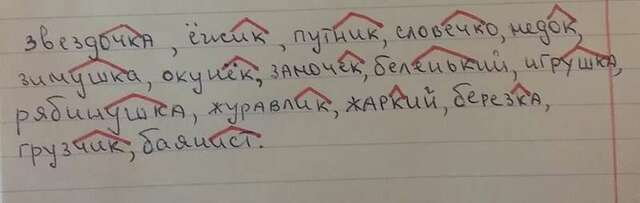 звездочка, ёжик, путник, словечко, медок,
зимушка, окунёк, замочек, беленький, игрушка,
рябинушка, журавлик, жаркий, березка,
грузчик, баянист.